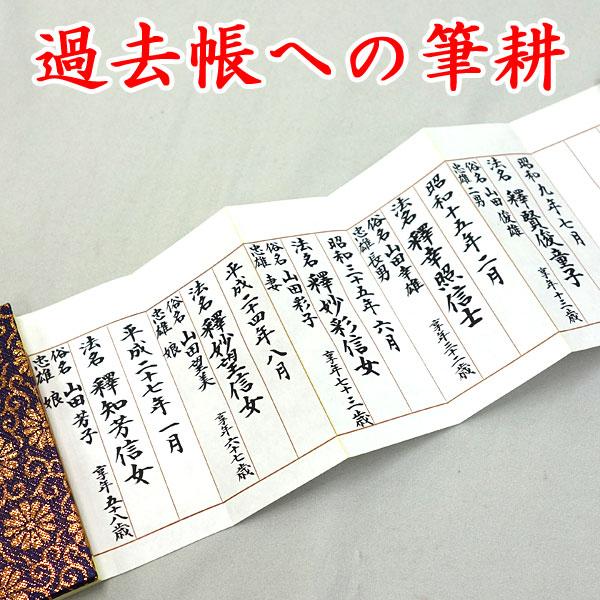 過去帳への筆耕
昭和九年七月
法名 釋賢俊童子 享年十三歳
俗名 山田俊雄
忠雄 二男
昭和十五年二月
法名 釋幸照信士 享年三十二歳
俗名 山田幸雄
忠雄 長男
昭和三十五年六月
法名 釋妙彩信女 享年七十三歳
俗名 山田彩子
忠雄 妻
平成二十四年八月
法名 釋妙望信女 享年六十七歳
俗名 山田望美
忠雄 娘
平成二十七年一月
法名 釋知芳信女 享年五十八歳
俗名 山田芳子
忠雄 娘